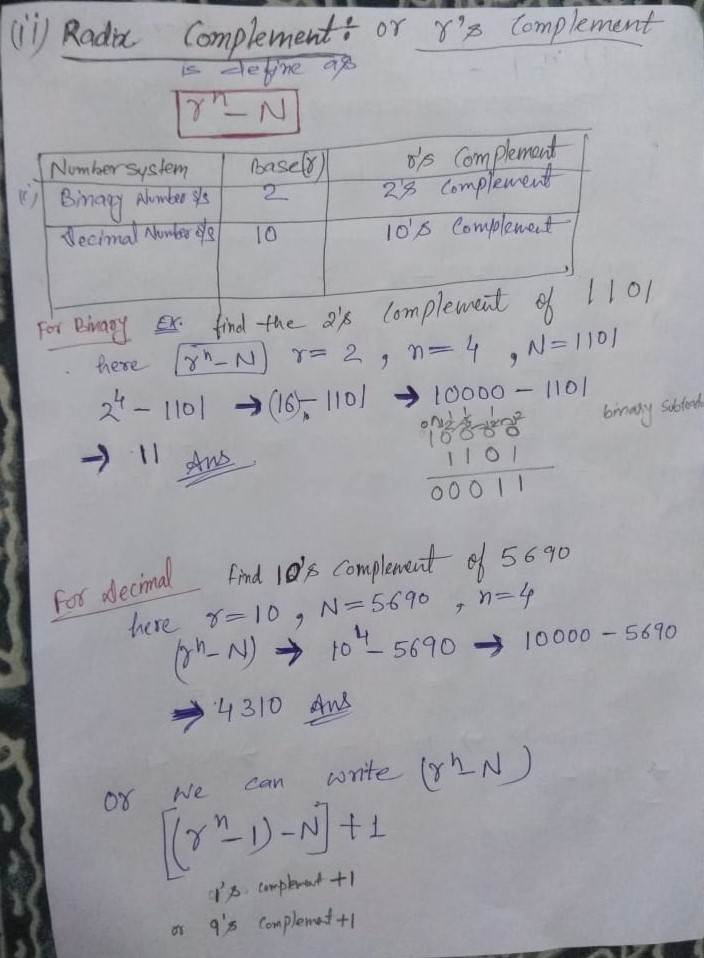 (ii) Radix Complement: or r's Complement
is define as
r^n - N
Number system Base(r) r's Complement
(i) Binary Number s/s 2 2's Complement
Decimal Number s/s 10 10's Complement
For Binary Ex. find the 2's Complement of 1101
here r^n - N r = 2 , n = 4 , N = 1101
2^4 - 1101 → (16) - 1101 → 10000 - 1101
binary
10000
→ 11 Ans
1101
00011
For Decimal find 10's Complement of 5690
here r = 10 , N = 5690 , n = 4
(r^n - N) → 10^4 - 5690 → 10000 - 5690
⇒ 4310 Ans
or we can write (r^n - N)
[(r^n - 1) - N] + 1
1's complement + 1
or 9's Complemet + 1